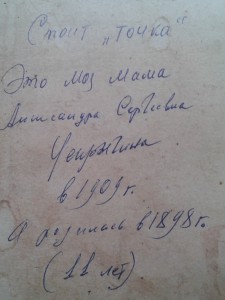 Стоит "точка"
Это моя мама
Александра Сергеевна
в 1909 г.
Я родилась в 1898 г.
(11 лет)